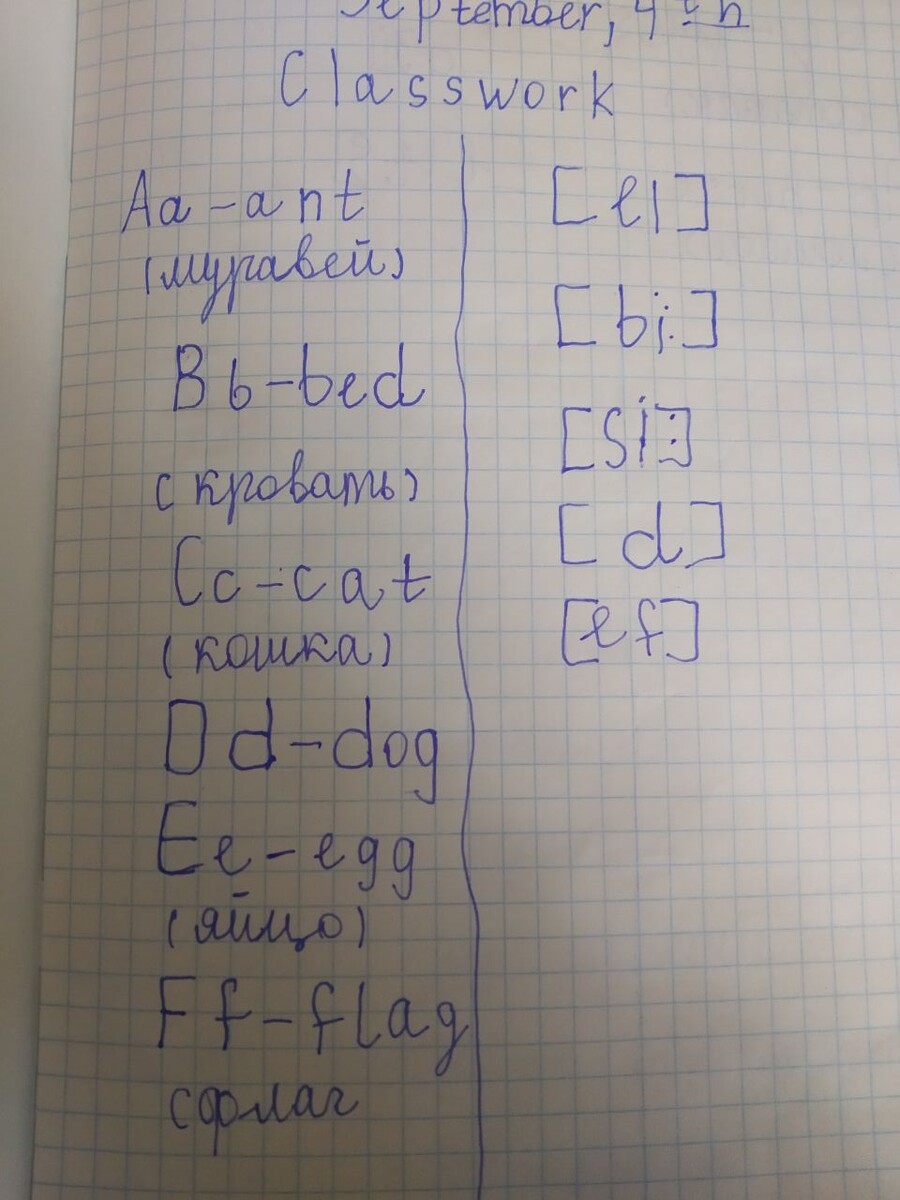 September, 4th
Classwork
Aa-ant
(муравей)
Bb-bed
(кровать)
Cc-cat
(кошка)
Dd-dog
Ee-egg
(яйцо)
Ff-flag
(флаг
[eI]
[bi:]
[si:]
[d]
[ef]